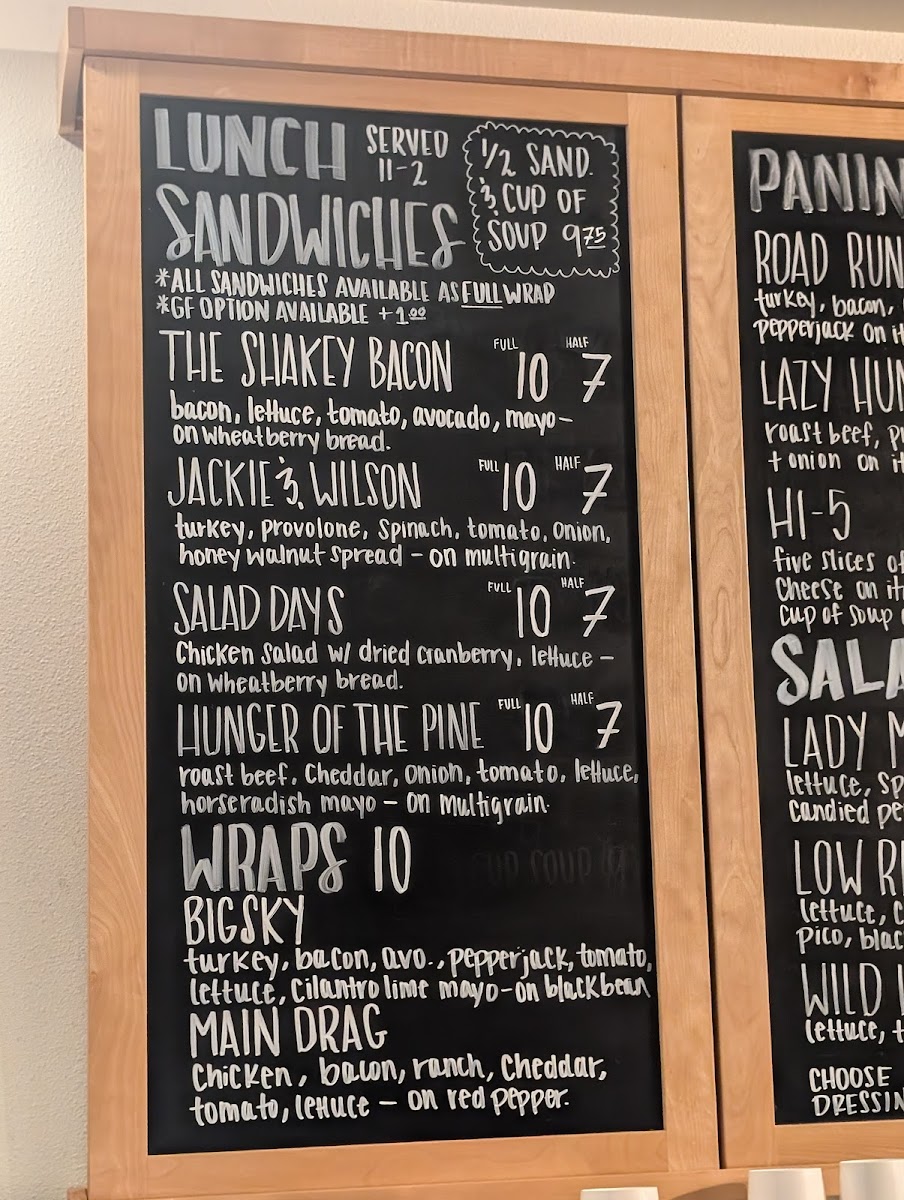 LUNCH SERVED
11-2
SANDWICHES
1/2 SAND.
& CUP OF
SOUP 9.75
*ALL SANDWICHES AVAILABLE AS FULL WRAP
*GF OPTION AVAILABLE +1.00
THE SHAKEY BACON FULL 10 HALF 7
bacon, lettuce, tomato, avocado, mayo-
on wheatberry bread.
JACKIE & WILSON FULL 10 HALF 7
turkey, provolone, spinach, tomato, onion,
honey walnut spread - on multigrain.
SALAD DAYS FULL 10 HALF 7
Chicken Salad w/ dried cranberry, lettuce -
on wheatberry bread.
HUNGER OF THE PINE FULL 10 HALF 7
roast beef, Cheddar, onion, tomato, lettuce,
horseradish mayo - on multigrain.
WRAPS 10
BIG SKY
turkey, bacon, avo., pepperjack, tomato,
lettuce, Cilantro lime mayo-on blackbean
MAIN DRAG
Chicken, bacon, ranch, Cheddar,
tomato, lettuce - on red pepper.
PANIN
ROAD RUN
turkey, bacon,
pepperjack on it
LAZY HUN
roast beef, pr
+ onion on it
HI-5
five slices of
Cheese on it
cup of soup
SALA
LADY M
lettuce, sp
candied pe
LOW RI
lettuce, c
pico, blac
WILD
lettuce, t
CHOOSE
DRESSIN